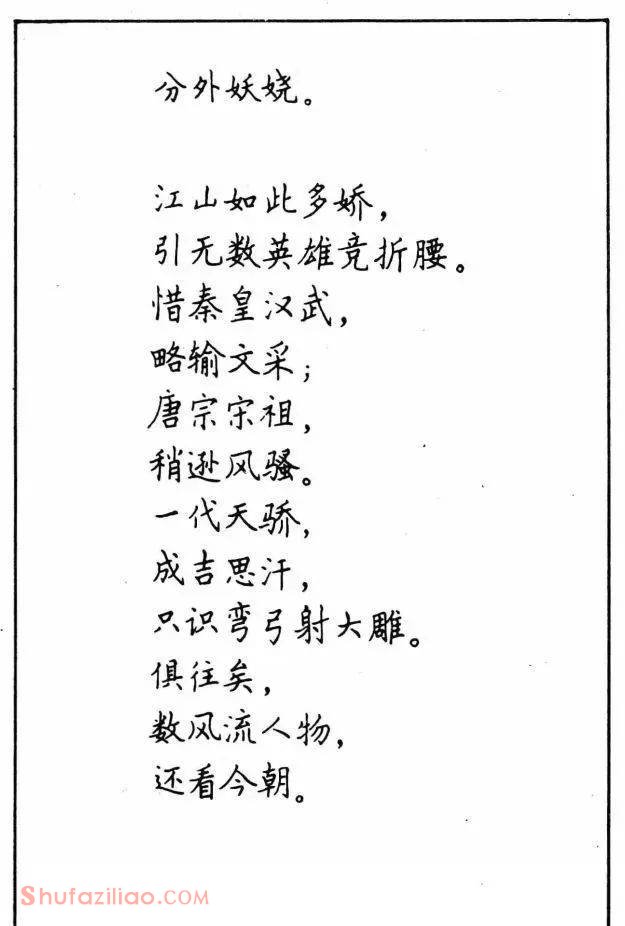 分外妖娆。
江山如此多娇，
引无数英雄竞折腰。
惜秦皇汉武，
略输文采；
唐宗宋祖，
稍逊风骚。
一代天骄，
成吉思汗，
只识弯弓射大雕。
俱往矣，
数风流人物，
还看今朝。
Shufaziliao.com